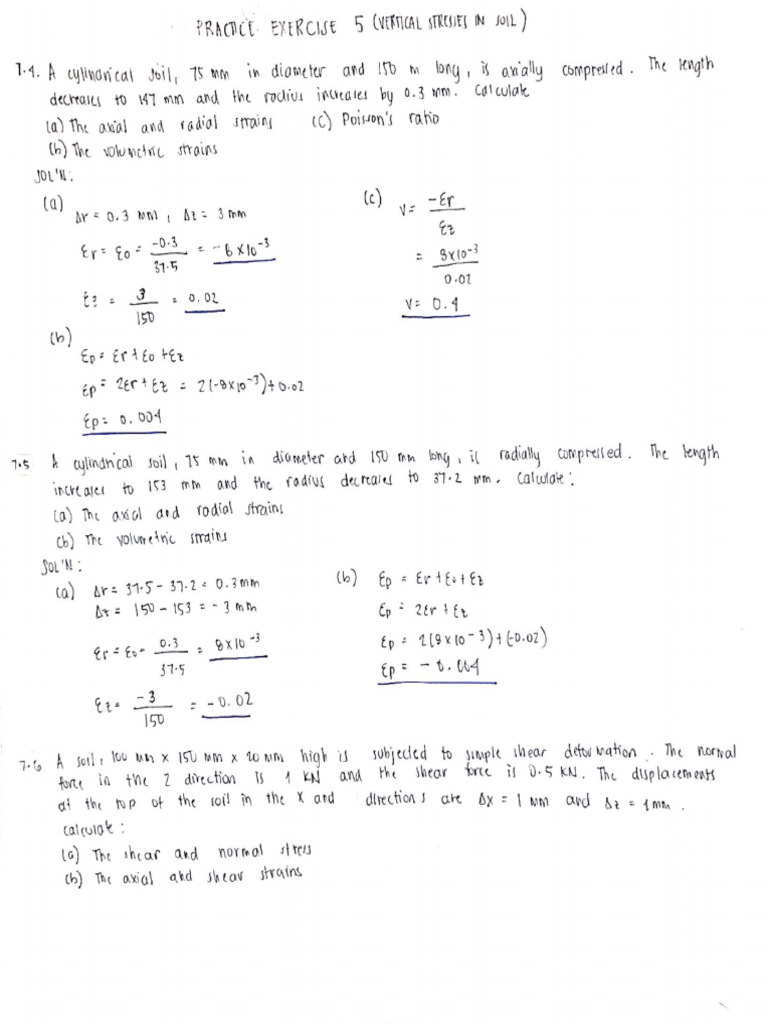 PRACTICE EXERCISE 5 (VERTICAL STRESSES IN SOIL)
7.4. A cylindrical soil, 75 mm in diameter and 150 m long, is axially compressed. The length
decreases to 147 mm and the radius increases by 0.3 mm. Calculate
(a) The axial and radial strains (c) Poisson's ratio
(b) The volumetric strains
SOL'N:
(a)
Δr = 0.3 mm, Δz = 3 mm
εr = εθ = -0.3 / 37.5 = -8 x 10^-3
εz = 3 / 150 = 0.02
(b)
εp = εr + εθ + εz
εp = 2εr + εz = 2(-8x10^-3) + 0.02
εp = 0.004
(c) v = -εr / εz
= 8x10^-3 / 0.02
v = 0.4
7.5 A cylindrical soil, 75 mm in diameter and 150 mm long, is radially compressed. The length
increases to 153 mm and the radius decreases to 37.2 mm. Calculate:
(a) The axial and radial strains
(b) The volumetric strains
SOL'N:
(a) Δr = 37.5 - 37.2 = 0.3 mm
Δz = 150 - 153 = -3 mm
εr = εθ = 0.3 / 37.5 = 8x10^-3
εz = -3 / 150 = -0.02
(b) εp = εr + εθ + εz
εp = 2εr + εz
εp = 2(8 x 10^-3) + (-0.02)
εp = -0.004
7.6 A soil, 100 mm x 150 mm x 20 mm high is subjected to simple shear deformation. The normal
force in the z direction is 1 KN and the shear force is 0.5 KN. The displacements
at the top of the soil in the x and directions are Δx = 1 mm and Δz = 1 mm.
calculate:
(a) The shear and normal stress
(b) The axial and shear strains